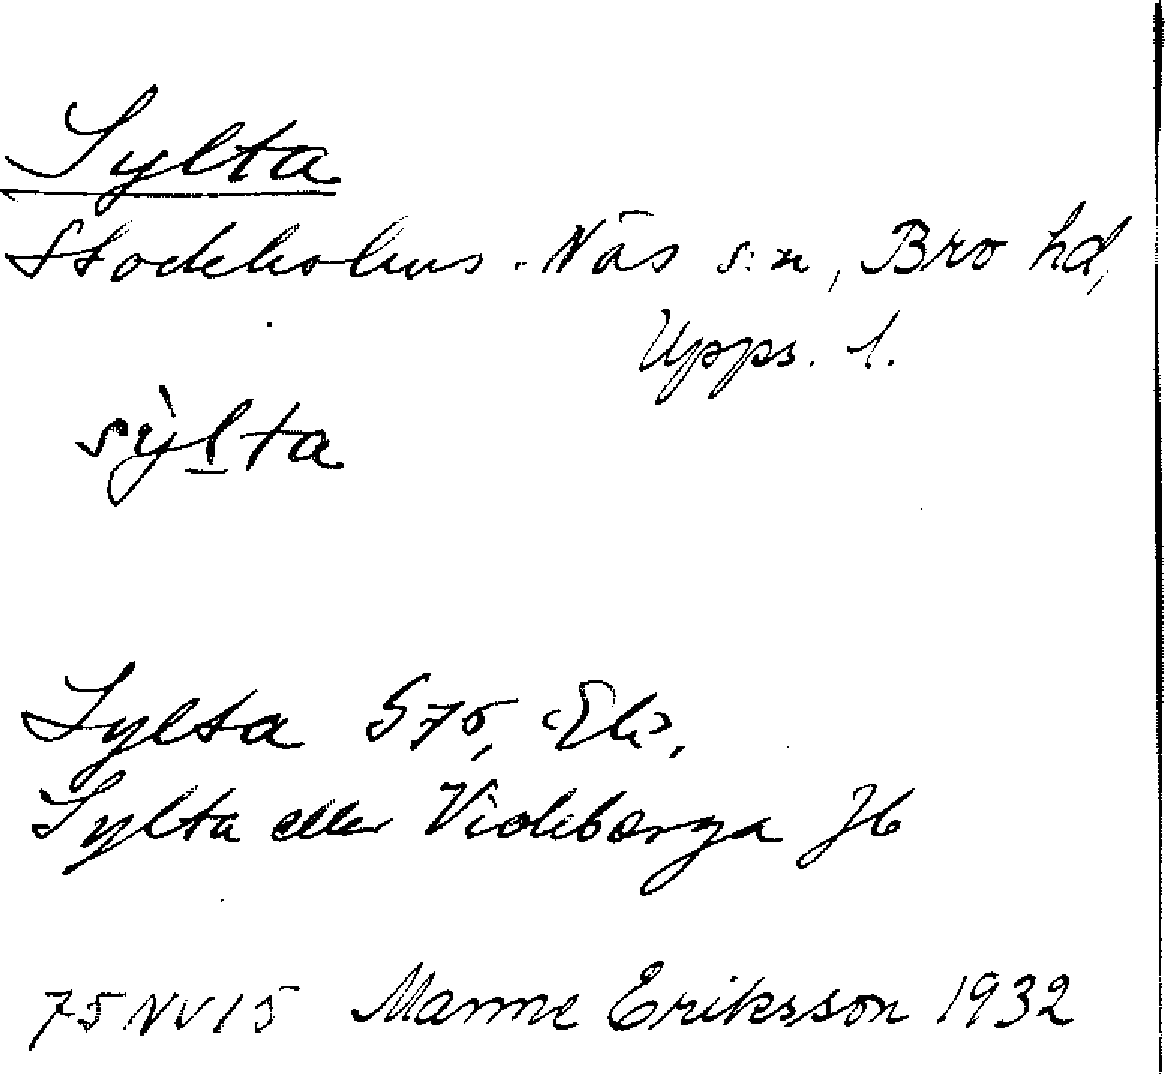 Sylta
Stockholms-Näs s:n, Bro hd,
Upps. l.
sỳlta
Sylta S75, Ek,
Sylta eller Vickberga Jb
75 NV 15 Manne Eriksson 1932